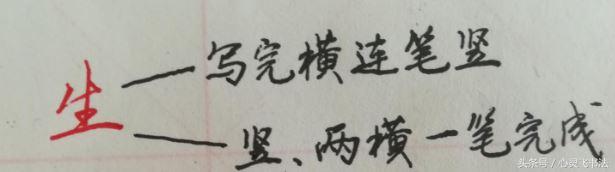 生
写完横连笔竖
竖、两横一笔完成
头条号/心灵飞书法